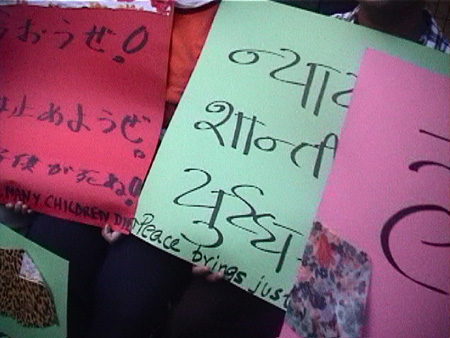 おうぜ!
止めようぜ。
子供が死ぬ!
MANY CHILDREN DIE
न्याय
शान्ती
युध्ध
Peace brings just